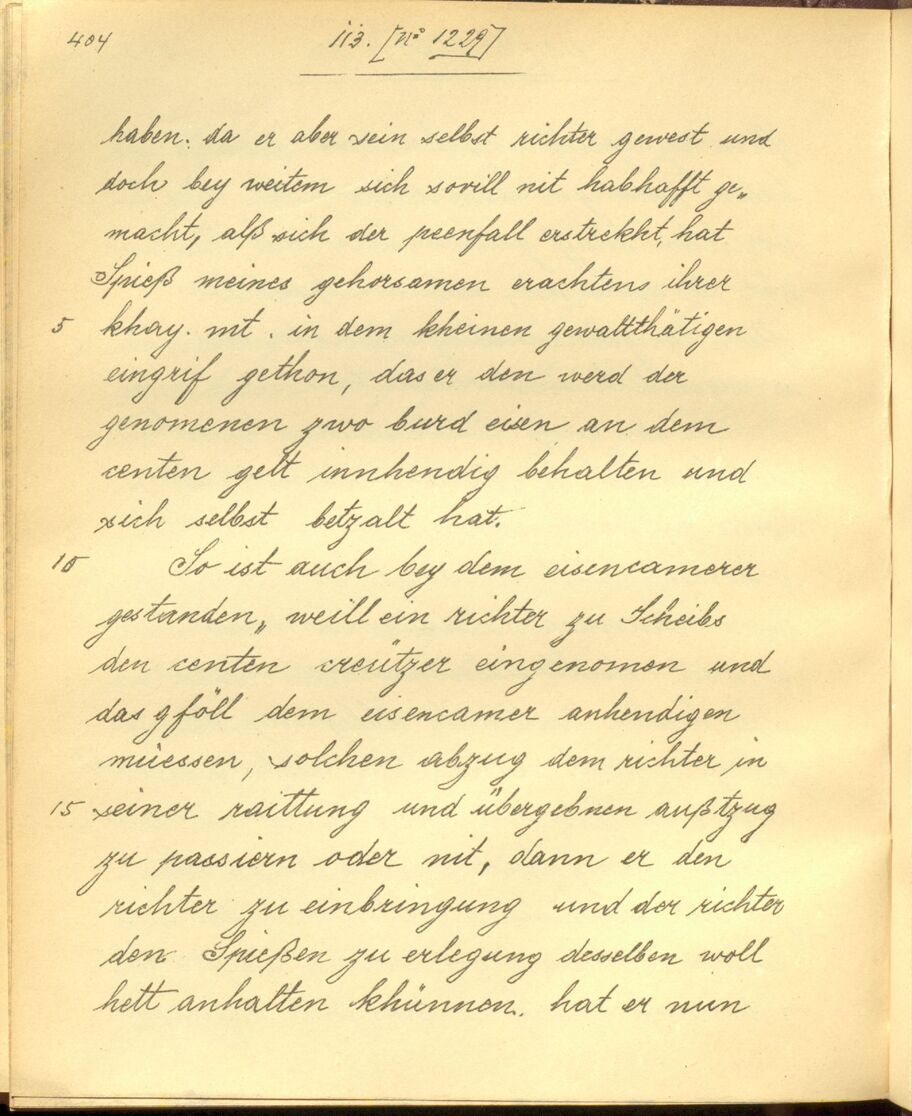 404
113. [nº 1229]
haben. da er aber sein selbst richter gewest und
doch bey weitem sich sovill nit habhafft ge„
macht, alß sich der peenfall erstrekht, hat
Spieß meines gehorsamen erachtens ihrer
5 khay. mt. in dem kheinen gewaltthätigen
eingrif gethon, das er den werd der
genomenen zwo burd eisen an dem
centen gelt innhendig behalten und
sich selbst betzalt hat.
10 So ist auch bey dem eisencamerer
gestanden„ weill ein richter zu Scheibs
den centen creützer eingenomen und
das gföll dem eisencamer anhendigen
müessen, solchen abzug dem richter in
15 seiner raittung und übergebnen außtzug
zu passiern oder nit, dann er den
richter zu einbringung und der richter
den Spießen zu erlegung desselben woll
hett anhalten khünnen. hat er nun